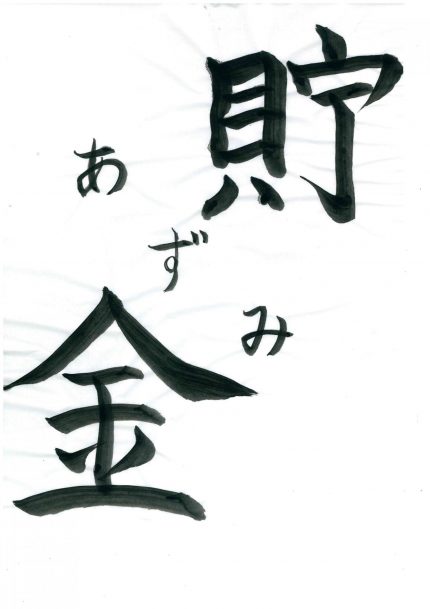 貯
あずみ
金